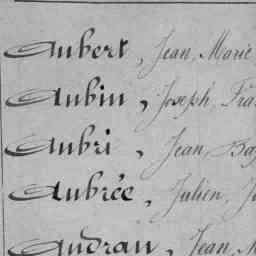 Aubert, Jean, Marie
Aubin, Joseph, Fra
Aubri, Jean, Bap
Aubrée, Julien, J
Audran, Jean, M